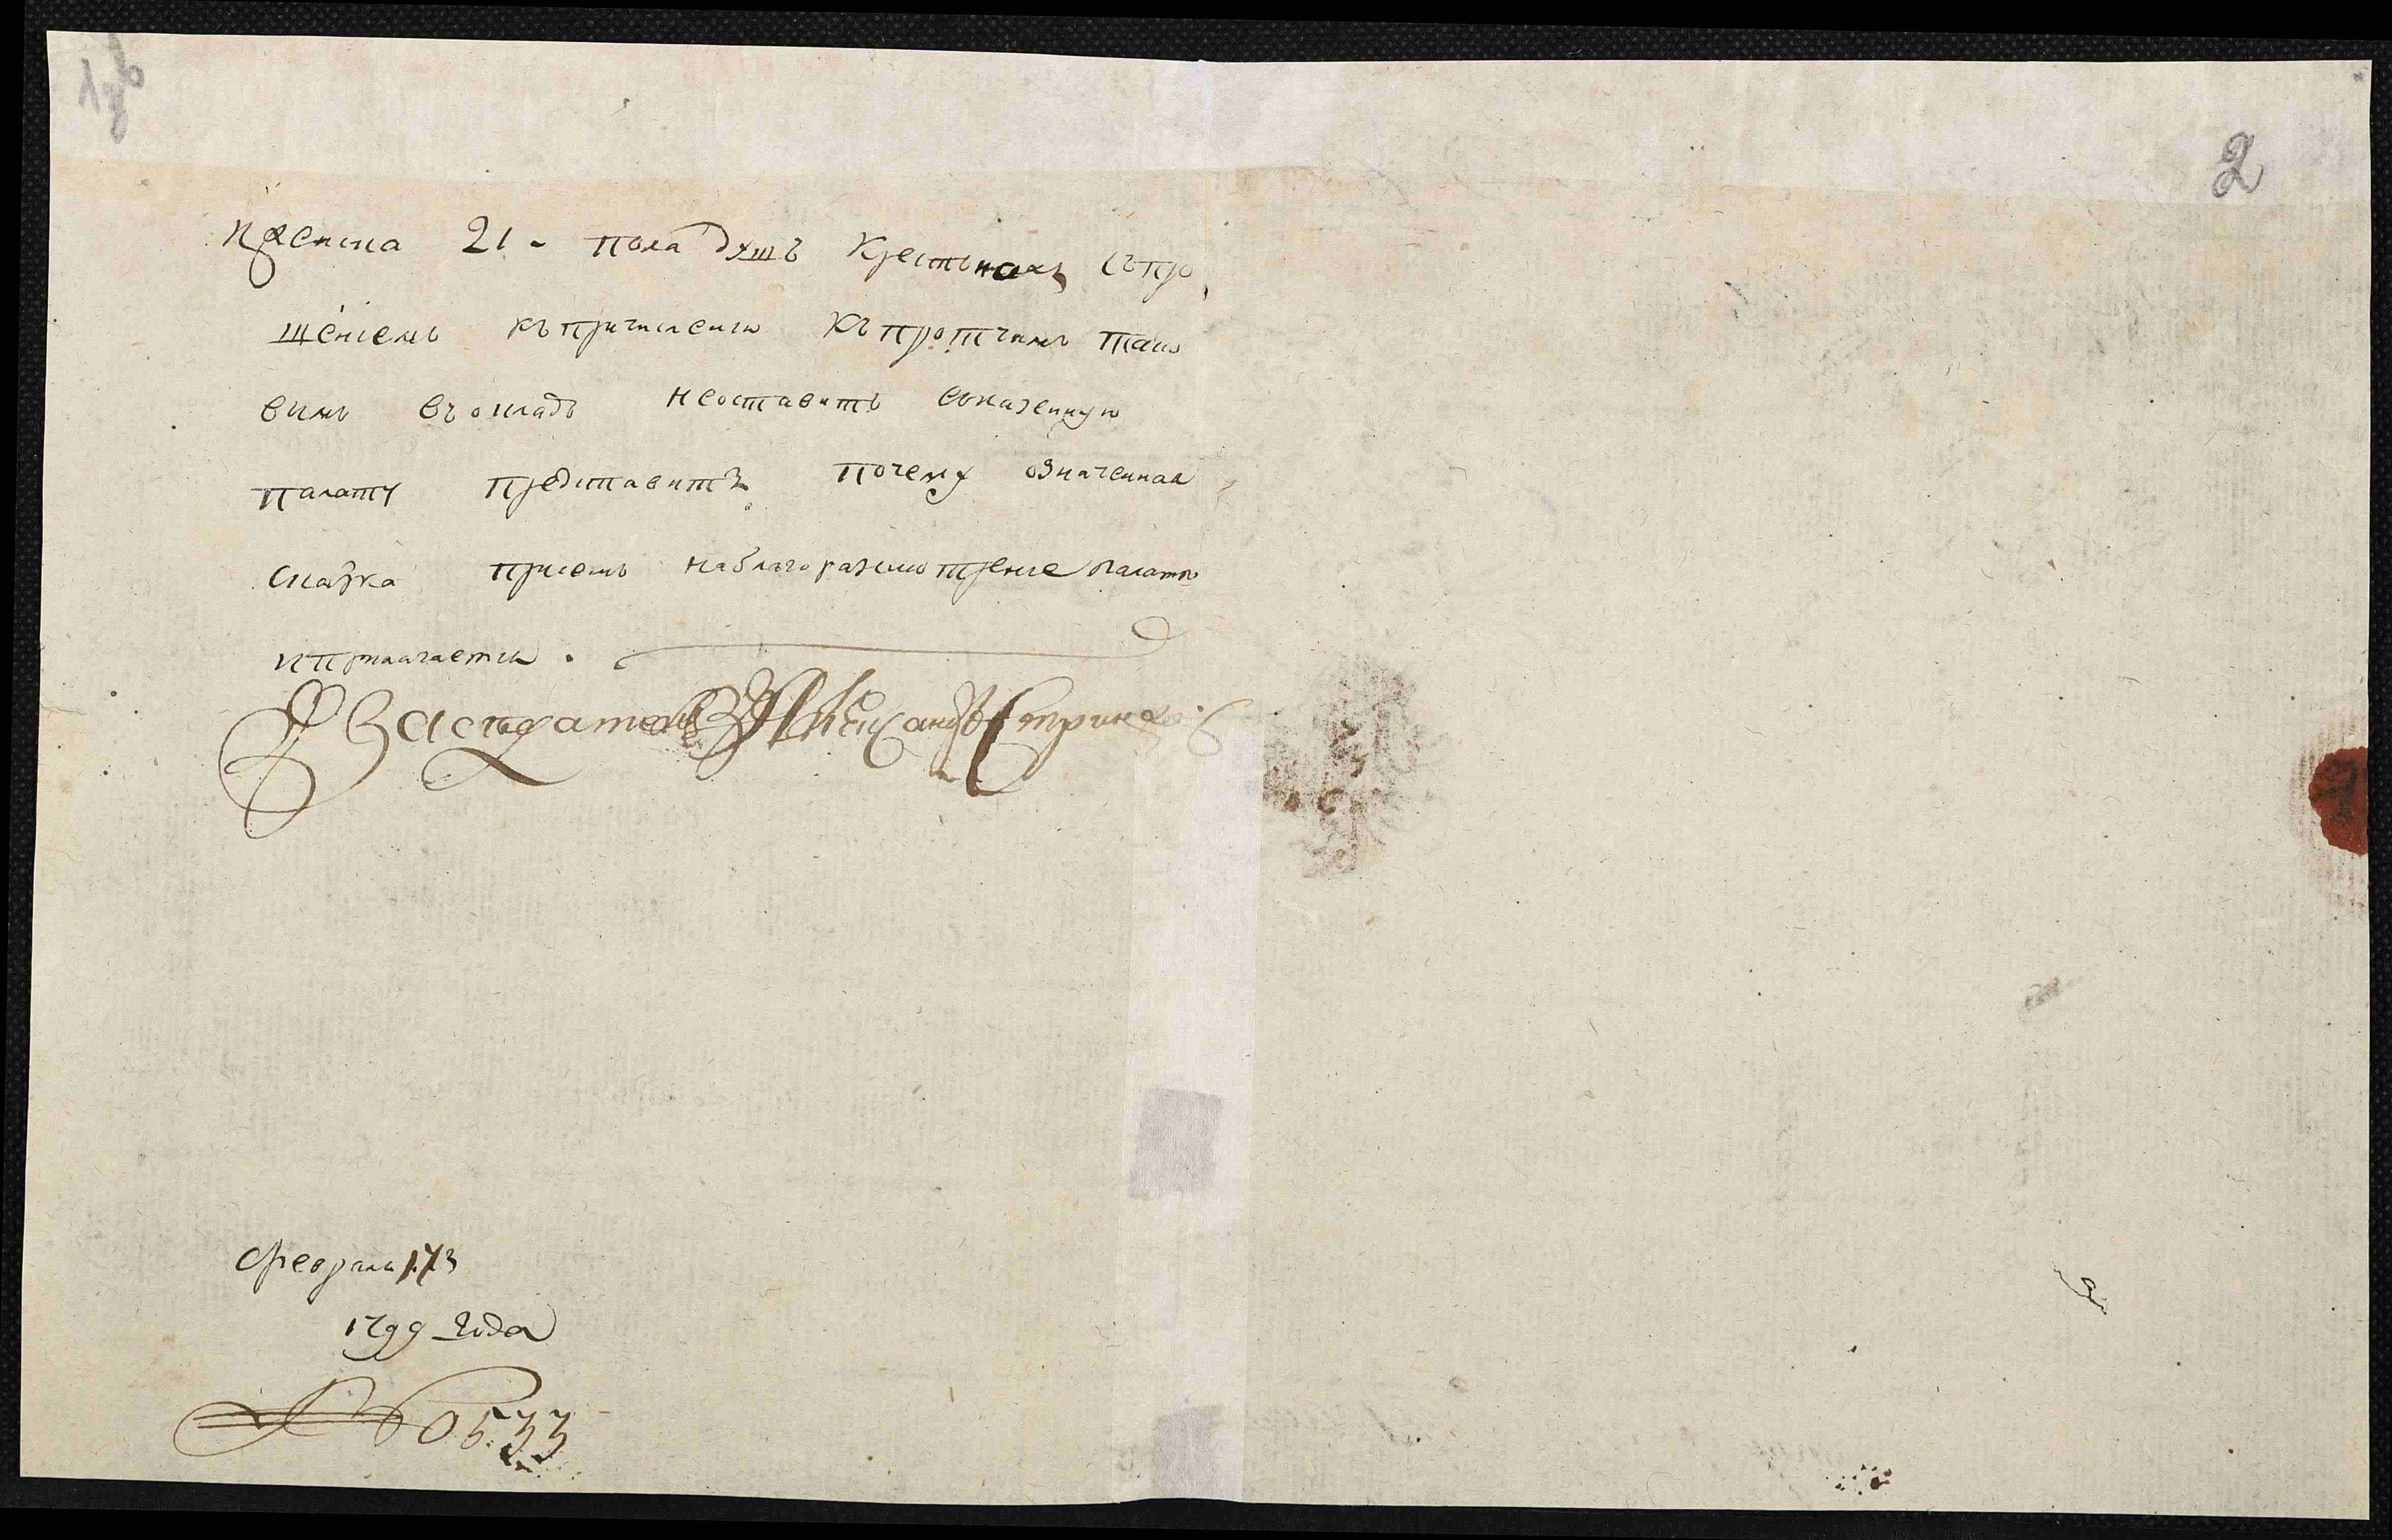 1 об
2
женска 21 - пола душъ крестьянахъ съпро
щениемъ къпричислению къпротчимъ тако
вимъ въокладъ неоставитъ воказенную
палату представитъ почему означенная
сказка присемъ наблагоразсмотрение палаты
иприлагаетца .
Заседатель Александръ
февраля 17з
1799 года
№ 0533